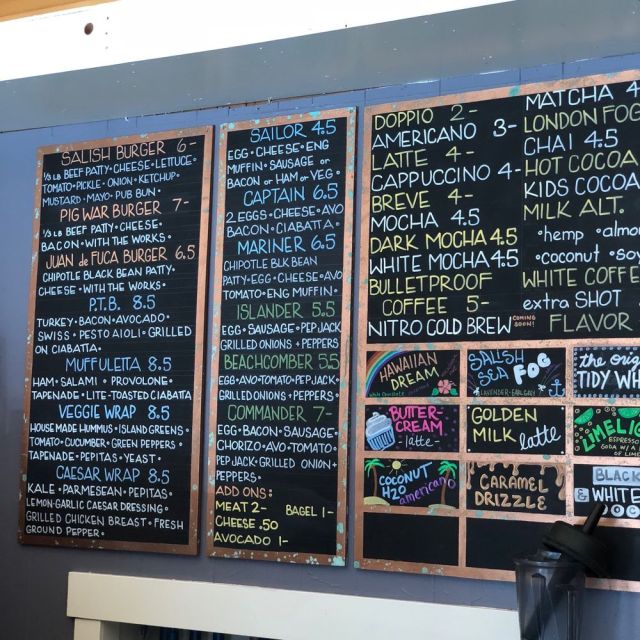 SALISH BURGER 6-
1/3 LB BEEF PATTY·CHEESE·LETTUCE·
TOMATO·PICKLE·ONION·KETCHUP·
MUSTARD·MAYO·PUB BUN·
PIG WAR BURGER 7-
1/3 LB BEEF PATTY·CHEESE·
BACON·WITH THE WORKS·
JUAN de FUCA BURGER 6.5
CHIPOTLE BLACK BEAN PATTY·
CHEESE·WITH THE WORKS·
P.T.B. 8.5
TURKEY·BACON·AVOCADO·
SWISS·PESTO AIOLI·GRILLED
ON CIABATTA·
MUFFULETTA 8.5
HAM·SALAMI·PROVOLONE·
TAPENADE·LITE-TOASTED CIABATTA
VEGGIE WRAP 8.5
HOUSE MADE HUMMUS·ISLAND GREENS·
TOMATO·CUCUMBER·GREEN PEPPERS·
TAPENADE·PEPITAS·YEAST·
CAESAR WRAP 8.5
KALE·PARMESEAN·PEPITAS·
LEMON-GARLIC CAESAR DRESSING·
GRILLED CHICKEN BREAST·FRESH
GROUND PEPPER·
SAILOR 4.5
EGG·CHEESE·ENG
MUFFIN·SAUSAGE or
BACON or HAM or VEG·
CAPTAIN 6.5
2 EGGS·CHEESE·AVO
BACON·CIABATTA·
MARINER 6.5
CHIPOTLE BLK BEAN
PATTY·EGG·CHEESE·AVO
TOMATO·ENG MUFFIN·
ISLANDER 5.5
EGG·SAUSAGE·PEPJACK
GRILLED ONIONS+PEPPERS
BEACHCOMBER 5.5
EGG·AVO·TOMATO·PEPJACK·
GRILLED ONIONS+PEPPERS·
COMMANDER 7-
EGG·BACON·SAUSAGE·
CHORIZO·AVO·TOMATO·
PEPJACK·GRILLED ONION+
PEPPERS·
ADD ONS:
MEAT 2- BAGEL 1-
CHEESE .50
AVOCADO 1-
DOPPIO 2-
AMERICANO 3-
LATTE 4-
CAPPUCCINO 4-
BREVE 4-
MOCHA 4.5
DARK MOCHA 4.5
WHITE MOCHA 4.5
BULLETPROOF
COFFEE 5-
NITRO COLD BREW COMING SOON!
MATCHA 4
LONDON FOG
CHAI 4.5
HOT COCOA
KIDS COCOA
MILK ALT.
·hemp ·almo
·coconut ·soy
WHITE COFFE
extra SHOT
FLAVOR
HAWAIIAN
DREAM
SALISH
SEA FOG
LAVENDER·EARL GREY
the orig
TIDY WH
BUTTER-
CREAM
-latte-
GOLDEN
MILK latte
LIMELIG
ESPRESSO
COCONUT
H2O
americano
CARAMEL
DRIZZLE
BLACK
& WHITE